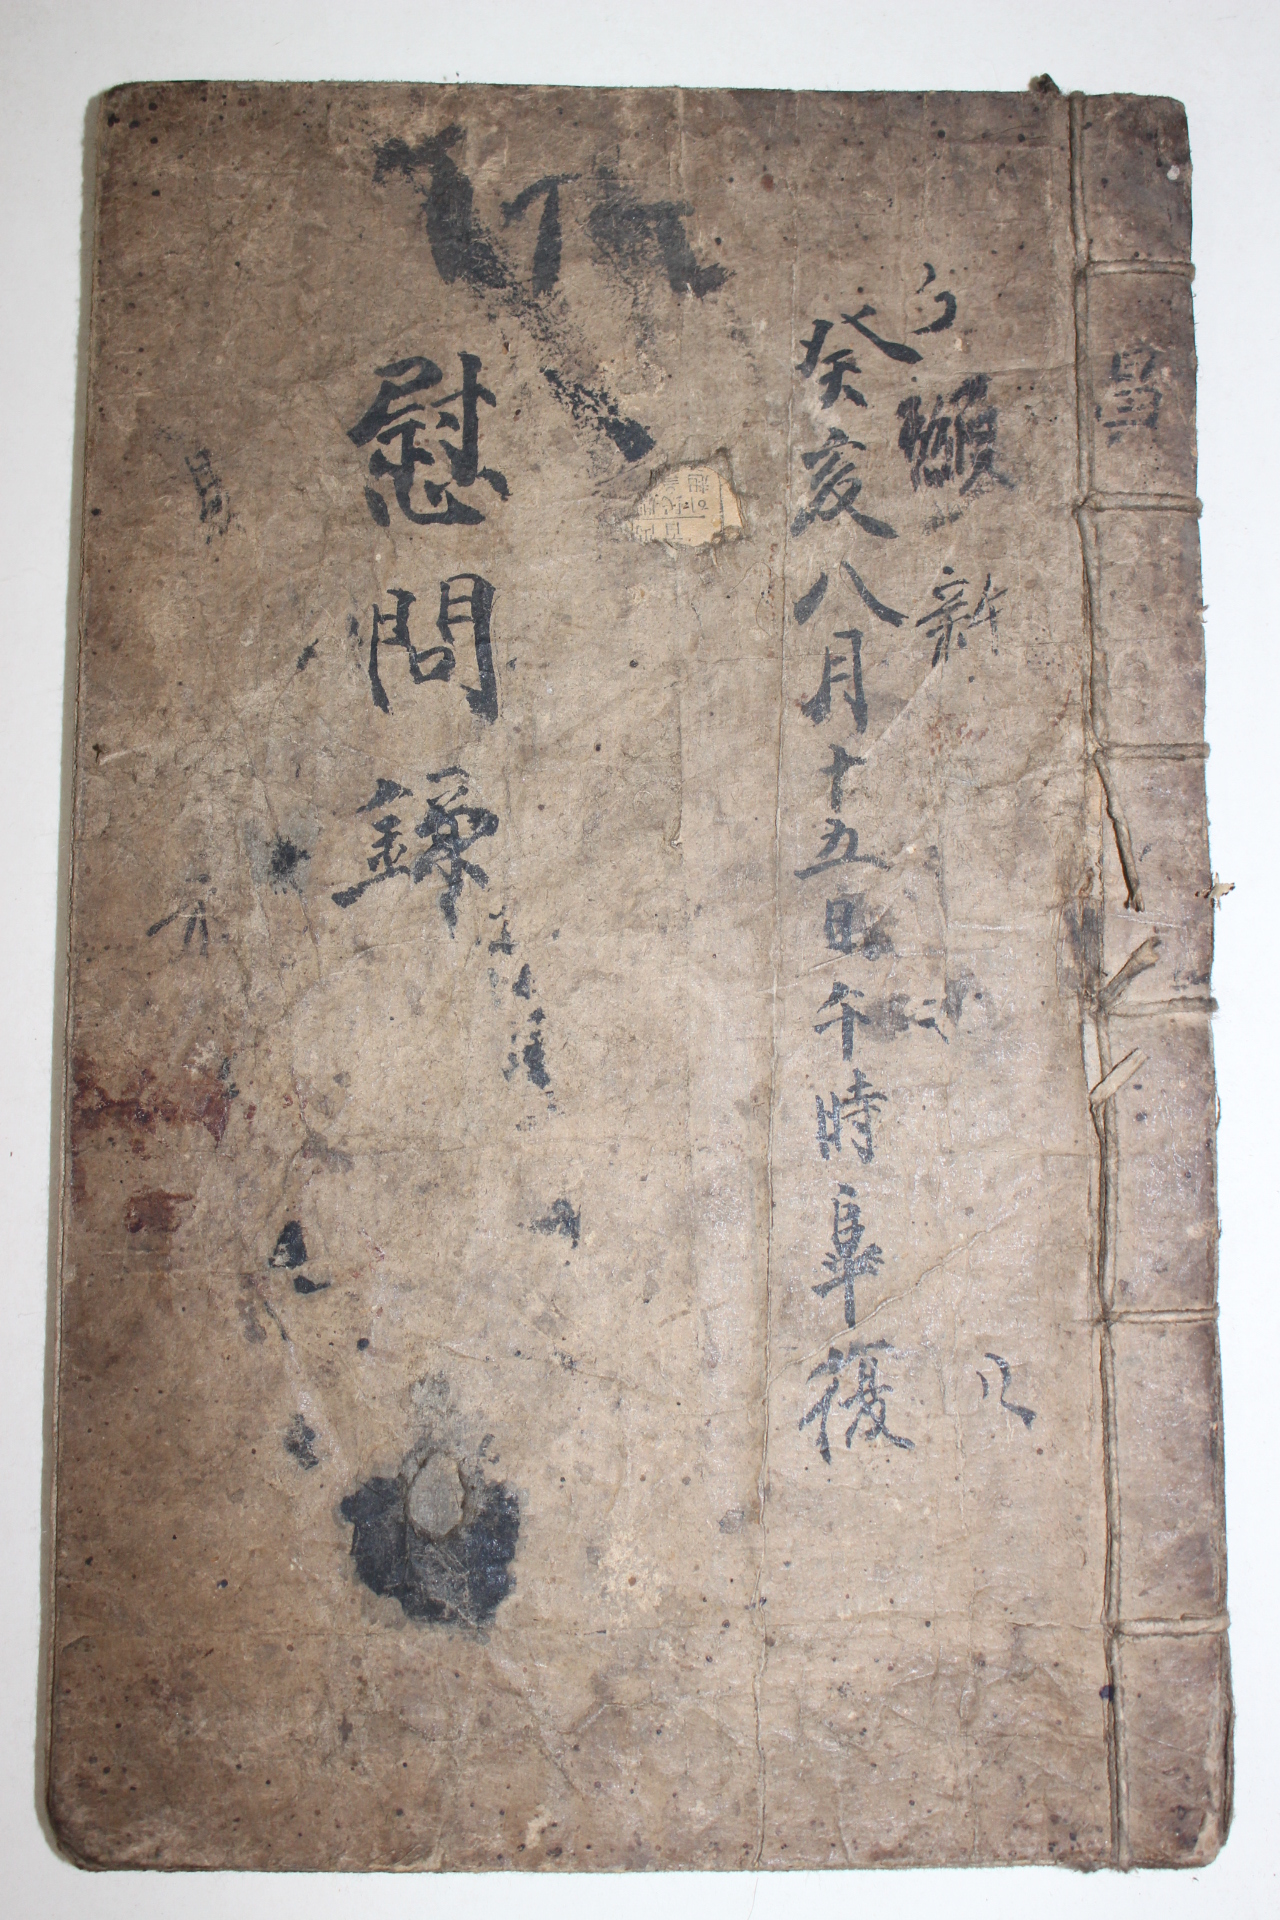 昌
新
癸亥八月十五日午時皐復
慰問錄